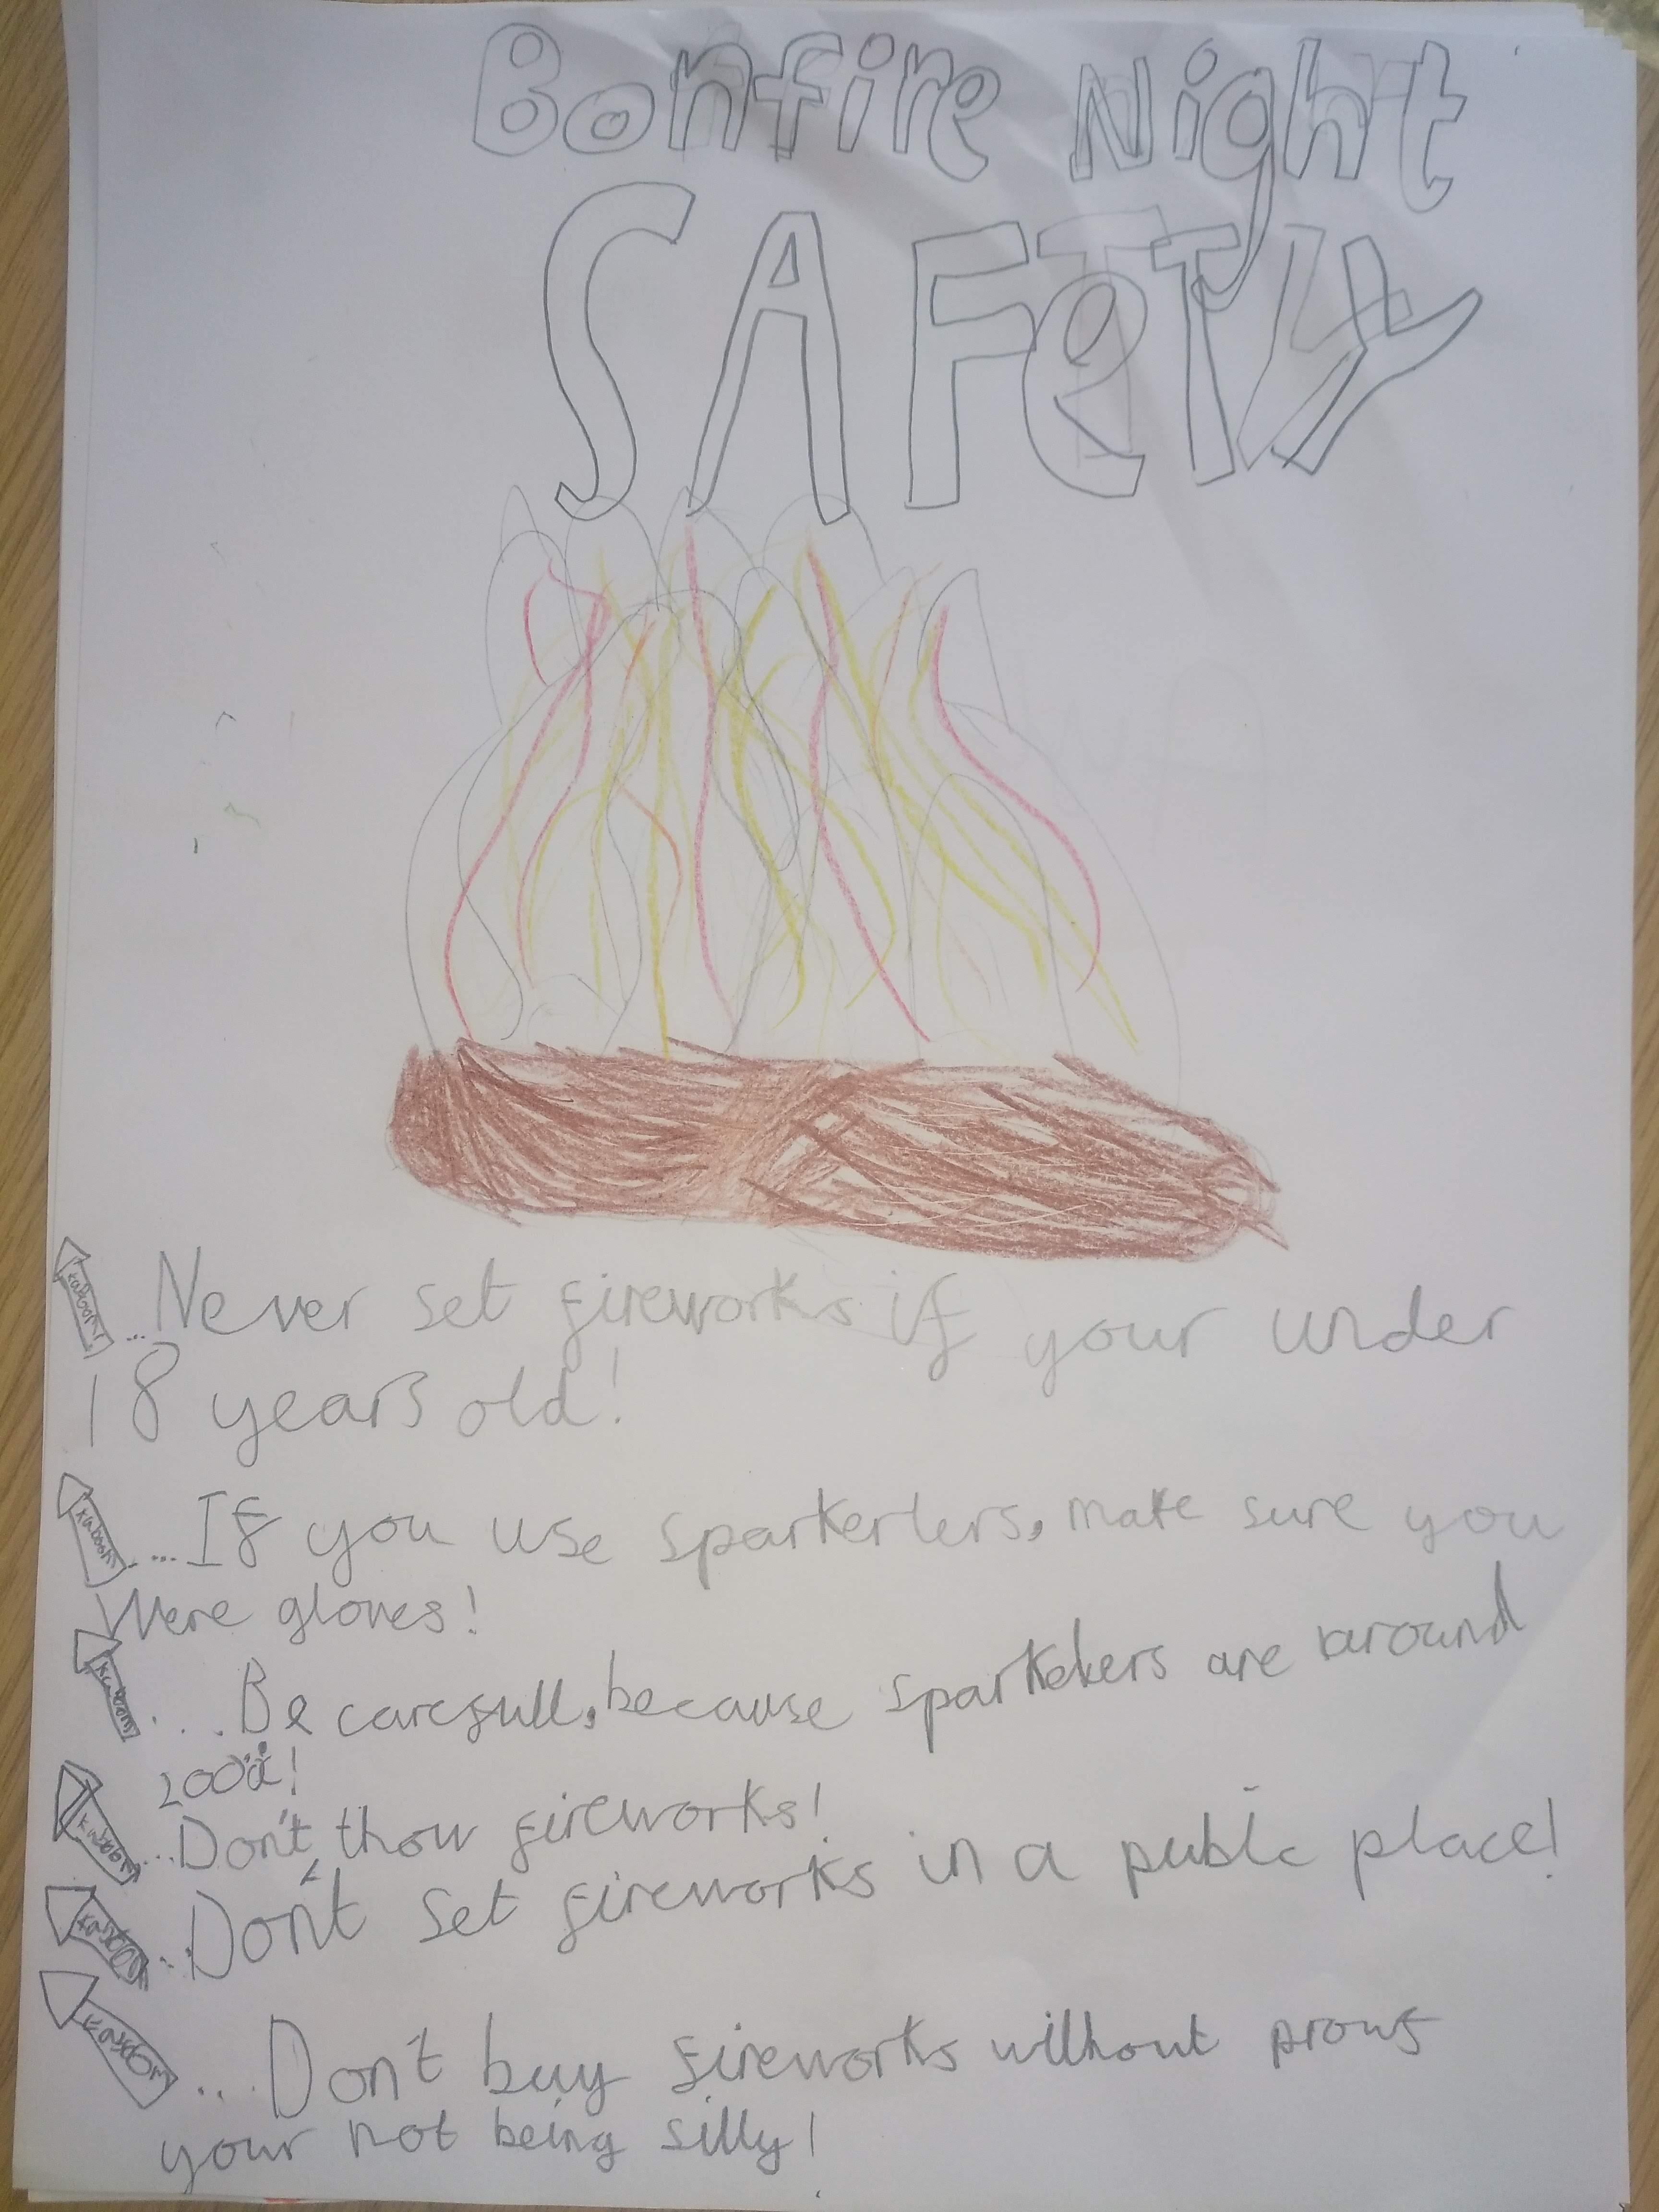 Bonfire Night
SAFETY
kaboom! ...Never set fireworks if your under
18 years old!
kaboom ...If you use sparkerlers, make sure you
Were gloves!
kaboom ...Be carefull, because sparkekers are around
200°c!
kaboom ...Don't thow fireworks!
...Don't set fireworks in a public place!
kaboom ...Don't buy fireworks without prouf
your not being silly!